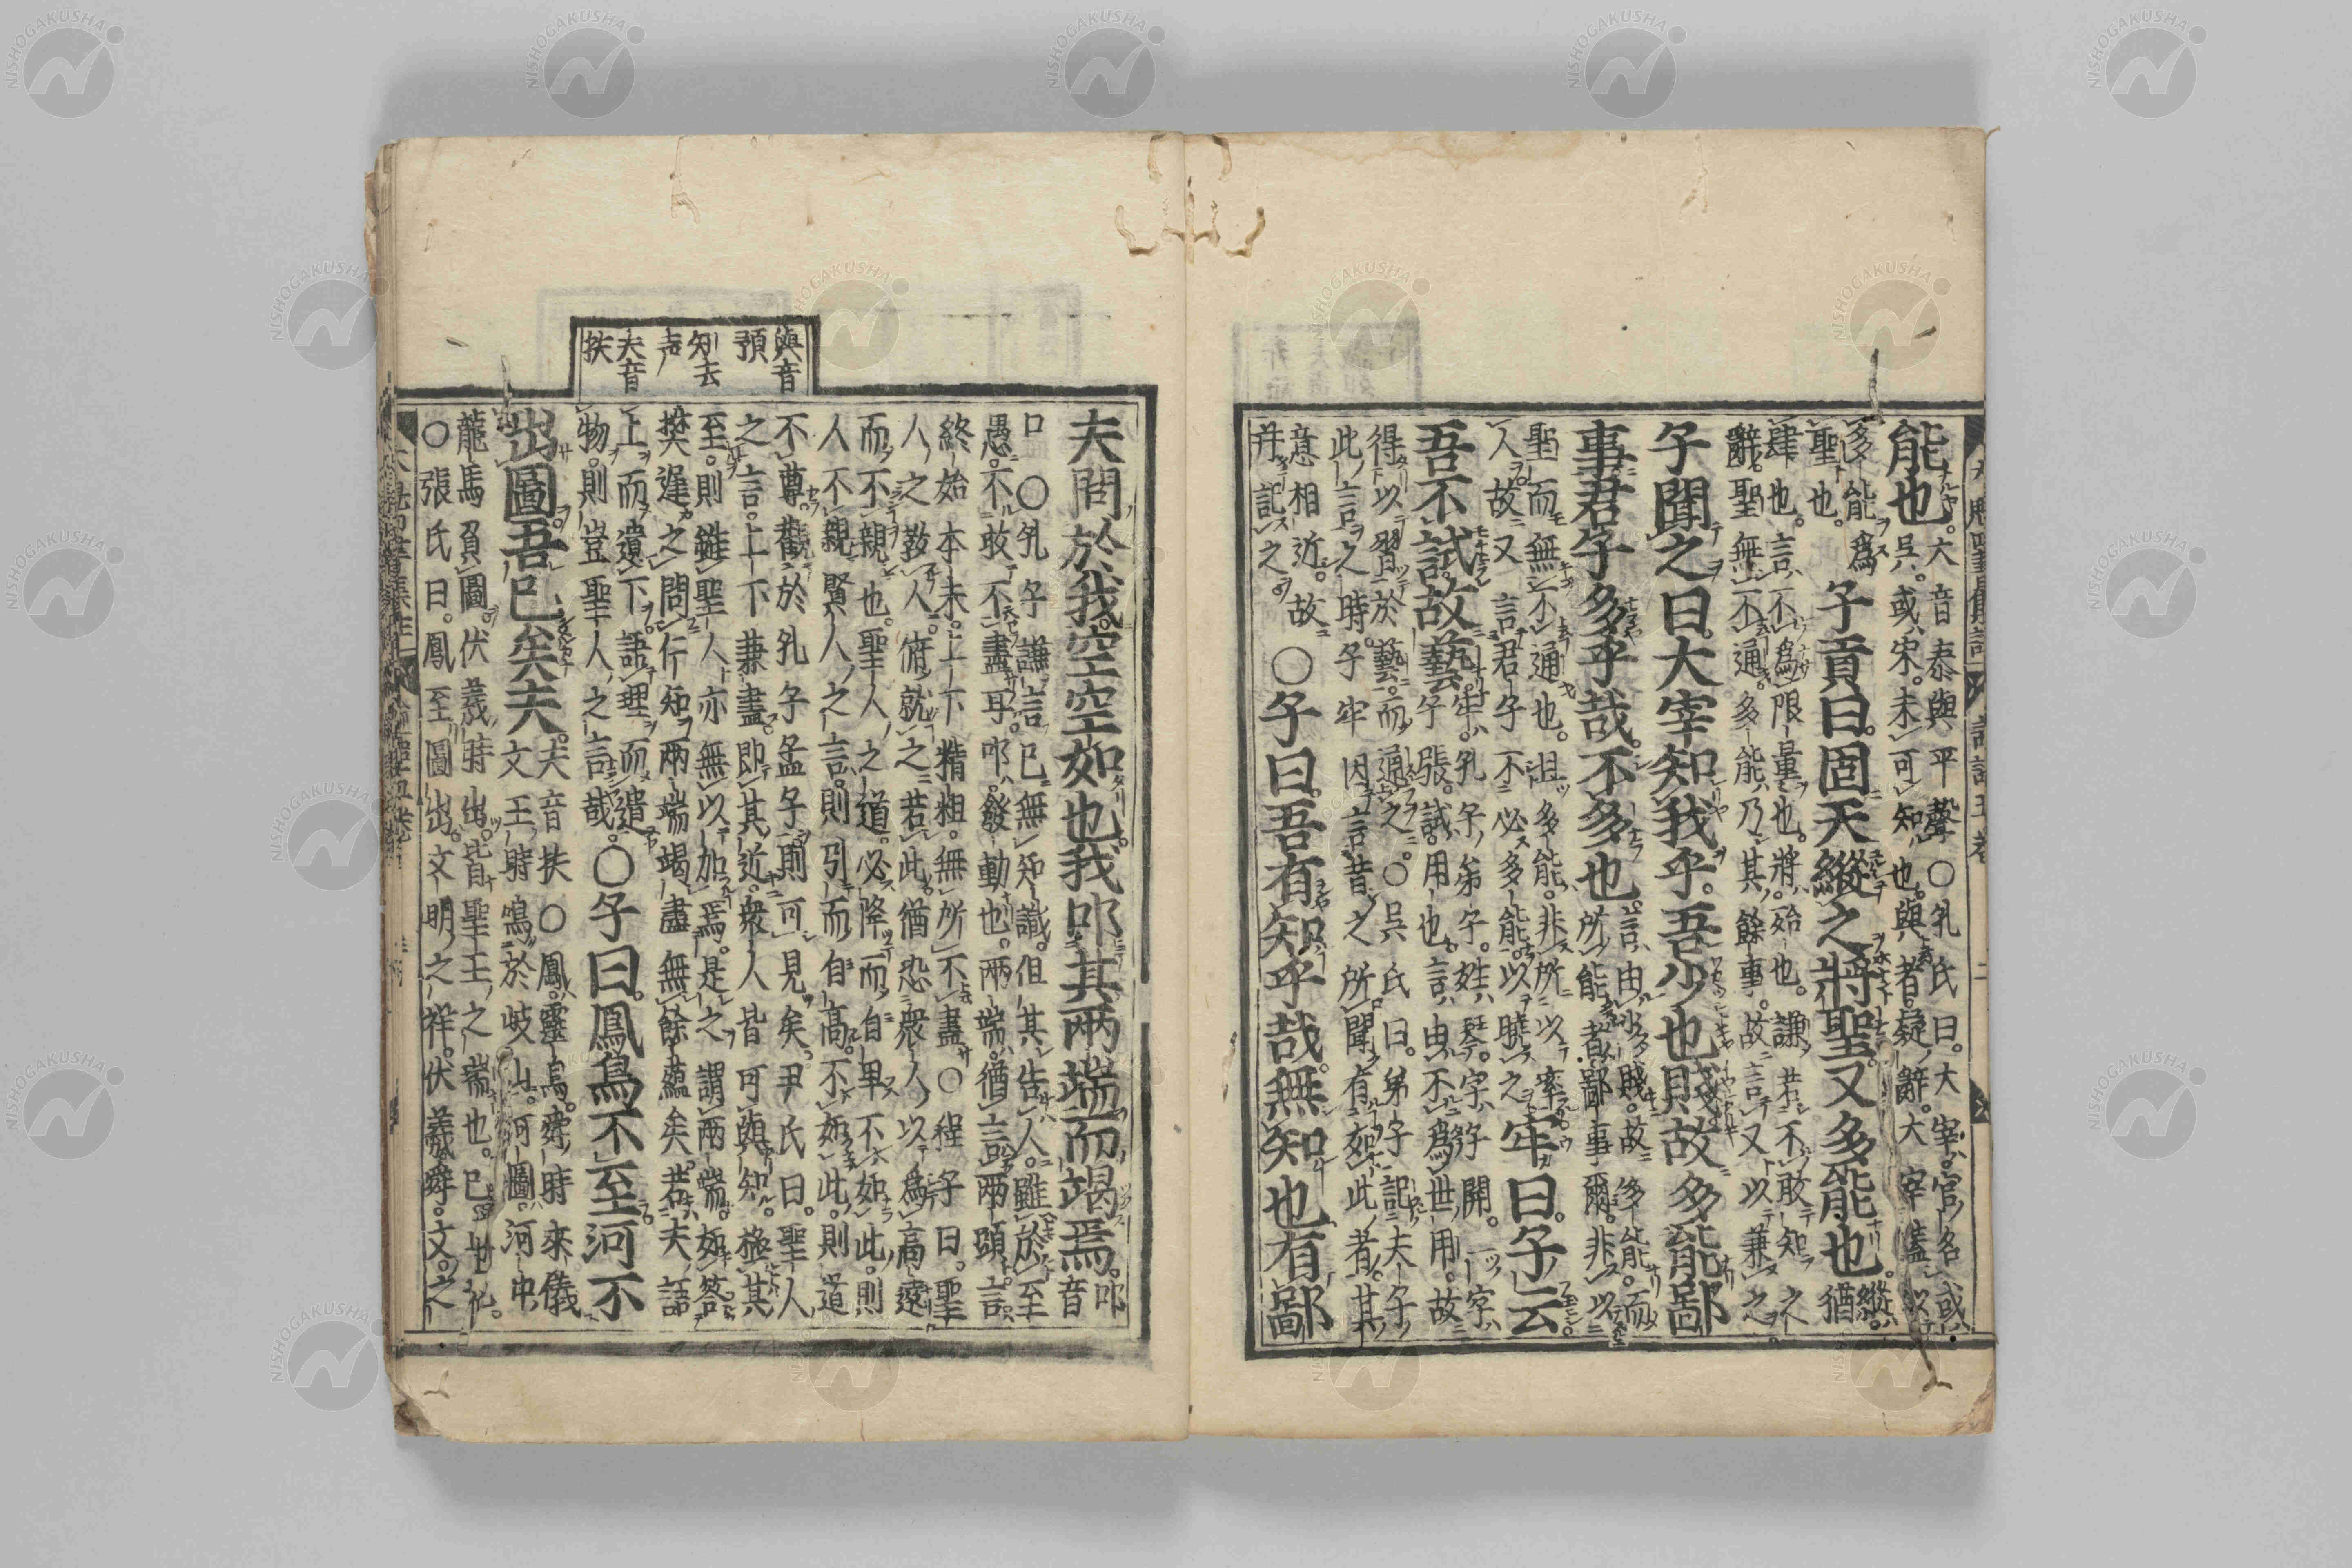 能也。大音泰與平聲〇孔氏曰。大宰。官名或
吳。或宋。未可知也。與者。疑辭。大宰蓋以
多能爲
聖也。
子貢曰。固天縱之將聖。又多能也。縱。猶
肆也。言不爲限量也。將。殆也。謙若不敢知之
辭。聖無不通。多能乃其餘事。故言又以兼之。
子聞之曰。大宰知我乎。吾少也賤。故多能鄙
事。君子多乎哉。不多也。言由少賤。故多能。而
所能者鄙事爾。非以
聖而無不通也。且多能。非所以率
人。故又言君子不必多能以曉之。
牢曰。子云
吾不試。故藝。牢。孔子弟子。姓琴。字子開。一字
子張。試。用也。言由不爲世用。故
得以習於藝。而通之。〇吳氏曰。弟子記夫子
此言之時。子牢因言昔之所聞有如此者。其
意相近。故
并記之。
〇子曰。吾有知乎哉。無知也。有鄙
夫問於我。空空如也。我叩其兩端而竭焉。叩
音
口〇孔子謙言己無知識。但其告人。雖於至
愚。不敢不盡耳。叩。發動也。兩端。猶言兩頭。言
終始本末。上下精粗。無所不盡〇程子曰。聖
人之教人。俯就之若此。猶恐衆人以爲高遠
而不親也。聖人之道。必降而自卑。不如此。則
人不親。賢人之言。則引而自高。不如此。則道
不尊。觀於孔子孟子。則可見矣。尹氏曰。聖人
之言。上下兼盡。即其近。衆人皆可與知。極其
至。則雖聖人亦無以加焉。是之謂兩端。如答
樊遲之問仁知。兩端竭盡。無餘蘊矣。若夫語
上而遺下。語理而遺
物。則豈聖人之言哉。
〇子曰。鳳鳥不至。河不
出圖。吾已矣夫。夫音扶〇鳳。靈鳥。舜時來儀。
文王時鳴於岐山。河圖。河中
龍馬負圖。伏羲時出。皆聖王之瑞也。已。止也。
〇張氏曰。鳳至圖出。文明之祥。伏羲舜。文。之
與音
預
知去
声
夫音
扶
NISHOGAKUSHA